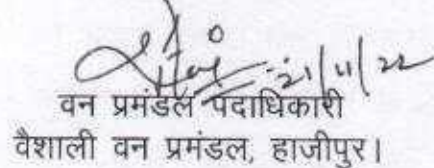 21/11/22
वन प्रमंडल पदाधिकारी
वैशाली वन प्रमंडल, हाजीपुर।